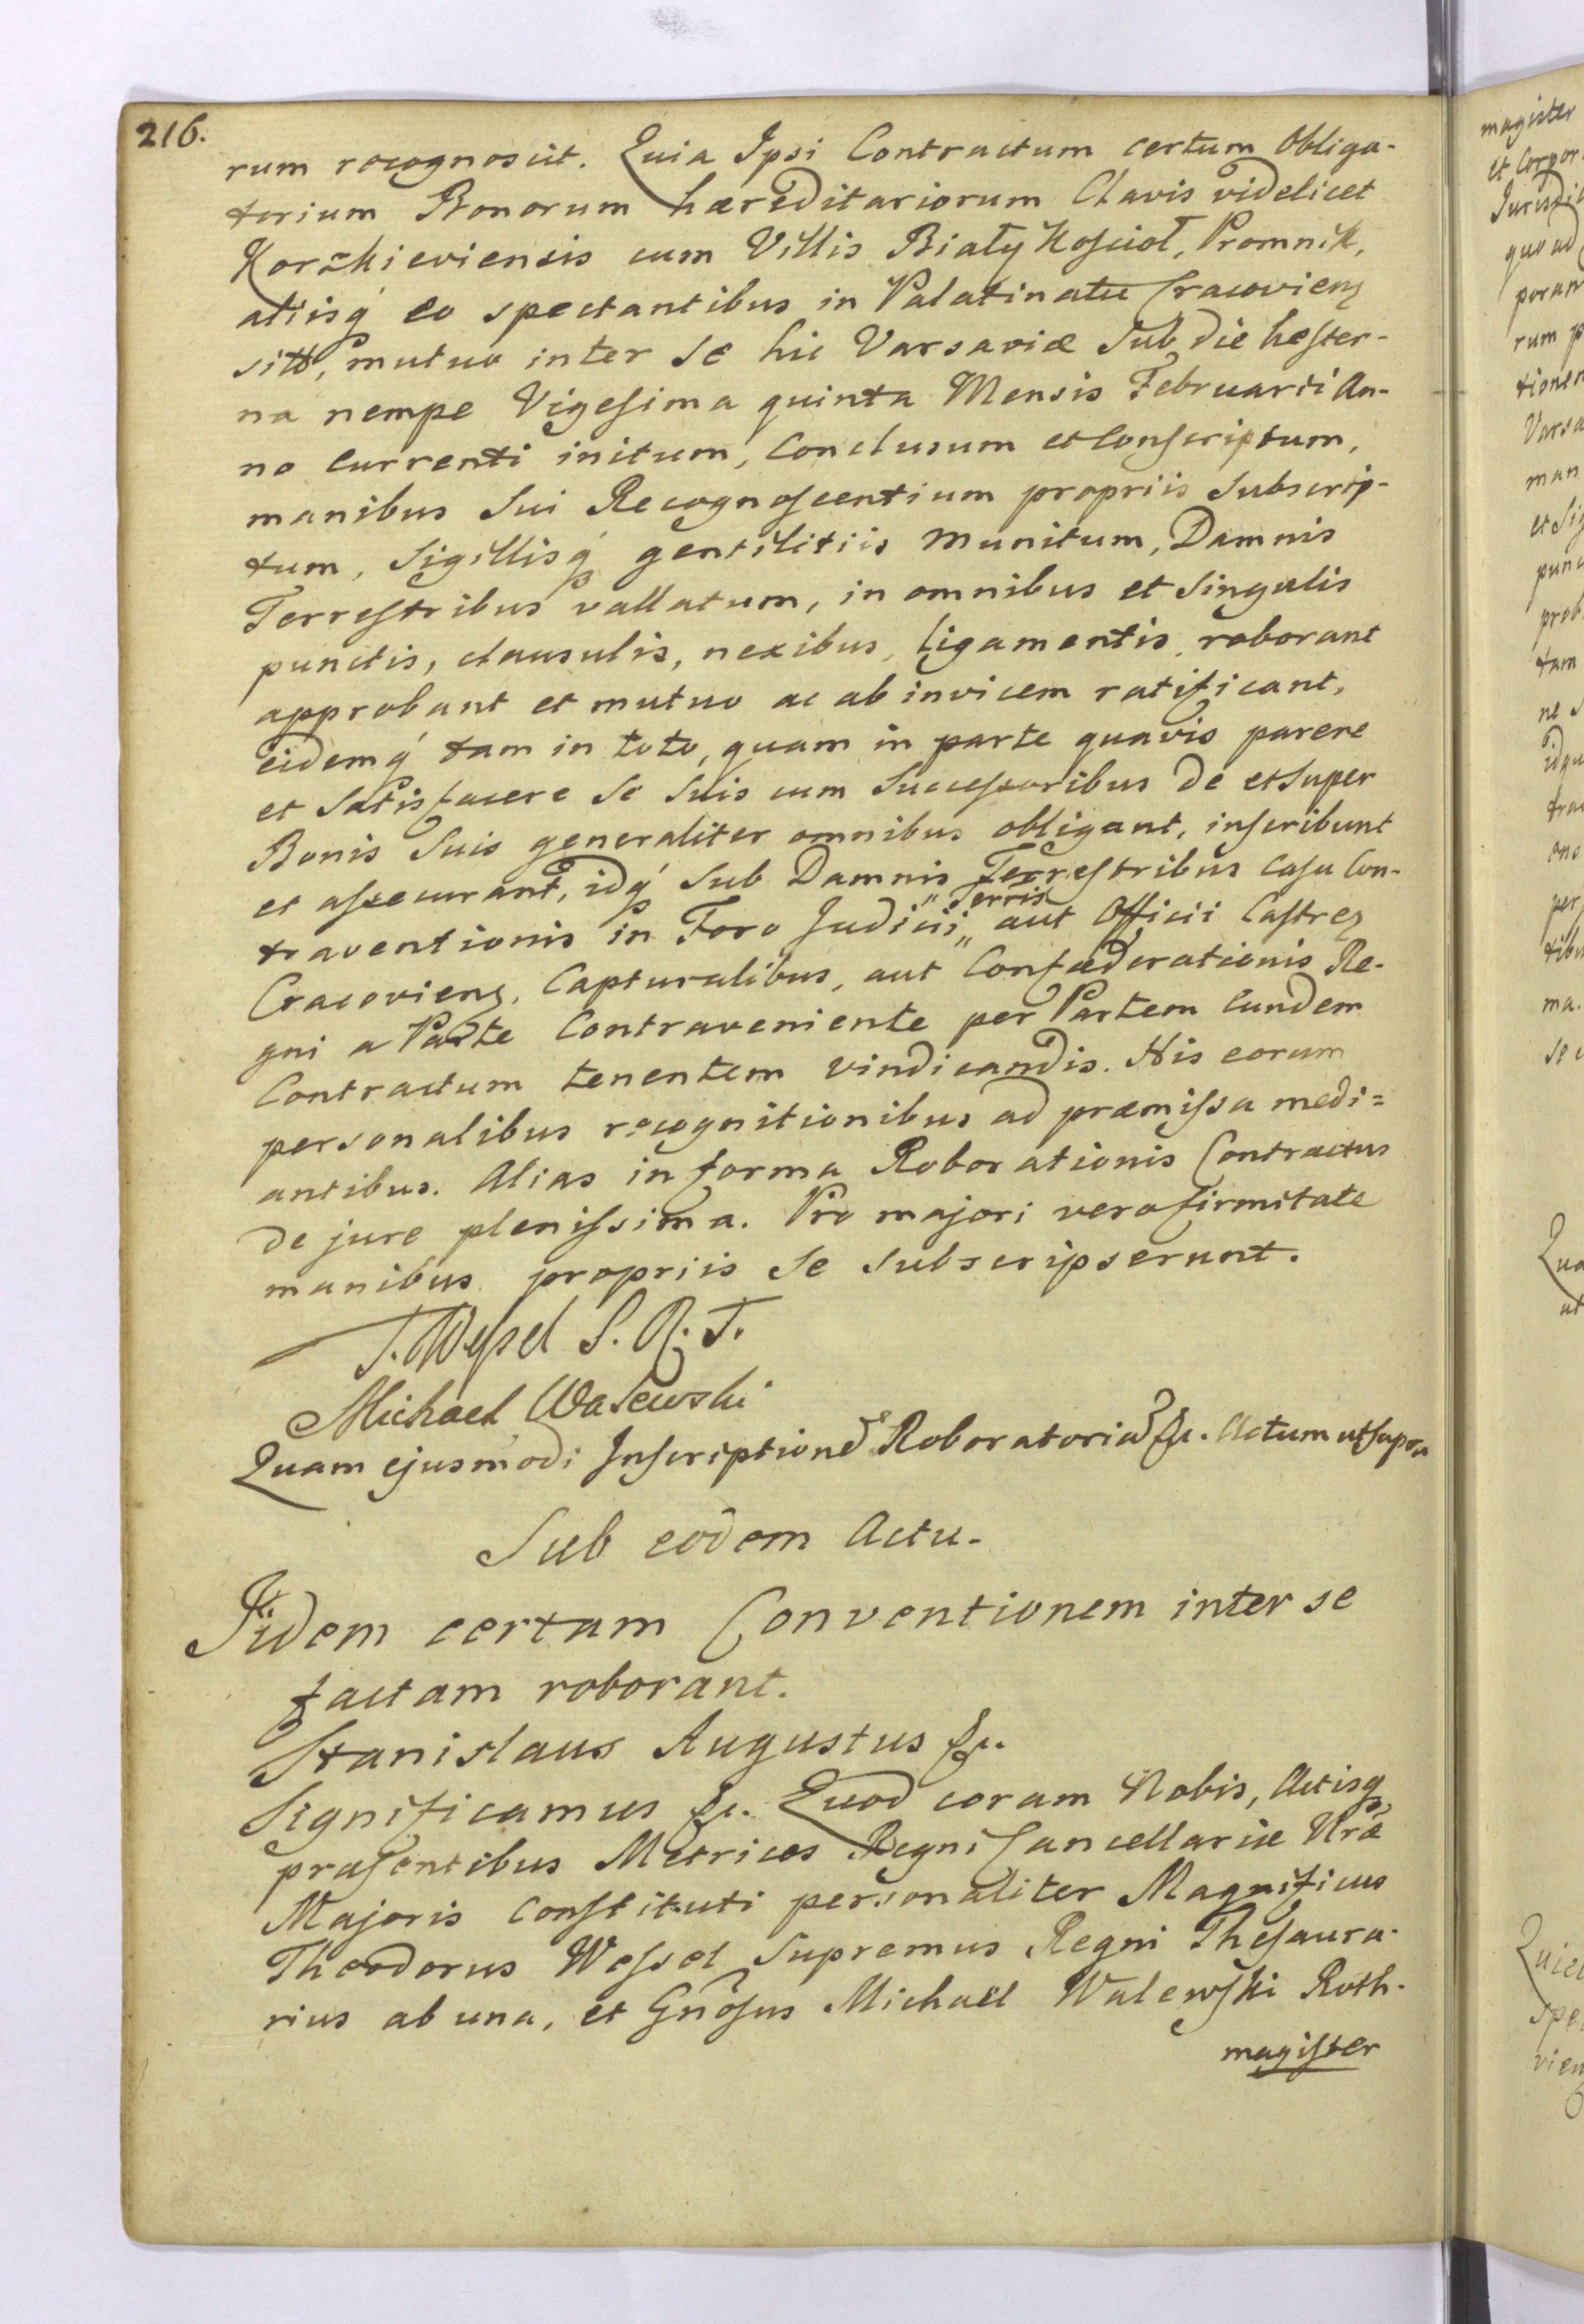 216.
rum rocognoscit. Quia Ipsi Contractum certum Obliga-
torium Bonorum hæreditariorum Clavis videlicet
Korzkieviensis cum Villis Biały Kościoł, Promnik,
aliisq́ eo spectantibus in Palatinatu Cracovienz
sitt, mutuo inter se hic Varsaviæ Sub die hester-
na nempe Vigesima quinta Mensis Februarii An-
no Currenti initum, Conclusum et Conscriptum,
manibus Sui Recognoscentium propriis Subscrip-
tum, Sigillisq́ gentilitiis munitum, Damnis
Terrestribus vallatum, in omnibus et Singulis
punctis, clausulis, nexibus, ligamentis, roborant
approbant et mutuo ac ab invicem ratificant,
eidemq́ tam in toto, quam in parte quavis parere
et Satisfacere Se Suis cum Successoribus De et Super
Bonis Suis generaliter omnibus obligant, inscribunt
et assecurant, idq́ Sub Damnis Terrestribus casu Con-
traventionis in Foro Judicii „ Terris „ aut Officii Castrez
Cracovienz, Capturalibus, aut Confæderationis Re-
gni a Parte Contraveniente per Partem Eundem
Contractum tenentem vindicandis. His eorum
personalibus recognitionibus ad præmissa medi=
antibus. Alias in forma Roborationis Contractus
de jure plenissima. Pro majori vero firmitate
manibus propriis Se Subscripserunt.
T. Wessel S. R. T.
Michael Walewski
Quam ejusmodi Inscriptione Roboratoria &c. Actum ut supra
Sub eodem Actu.
Iidem certam Conventionem inter se
factam roborant.
Stanislaus Augustus &c.
Significamus &c. Quod coram Nobis, Actisq
præsentibus Metrices Regni Cancellariæ Nræ
Majoris Constituti personaliter Magnificus
Theodorus Wessel Supremus Regni Thesaura-
rius ab una, et Gnosus Michaël Walewski Roth-
magister
magister
et Corpor
Jurisdi
quo ad
poran
rum p
tionem
Varsa
man
et Sig
punc
prob
tam
ne S
idqu
tra
ons
per
tibu
ma.
Se
Qua
ut
spe
vien